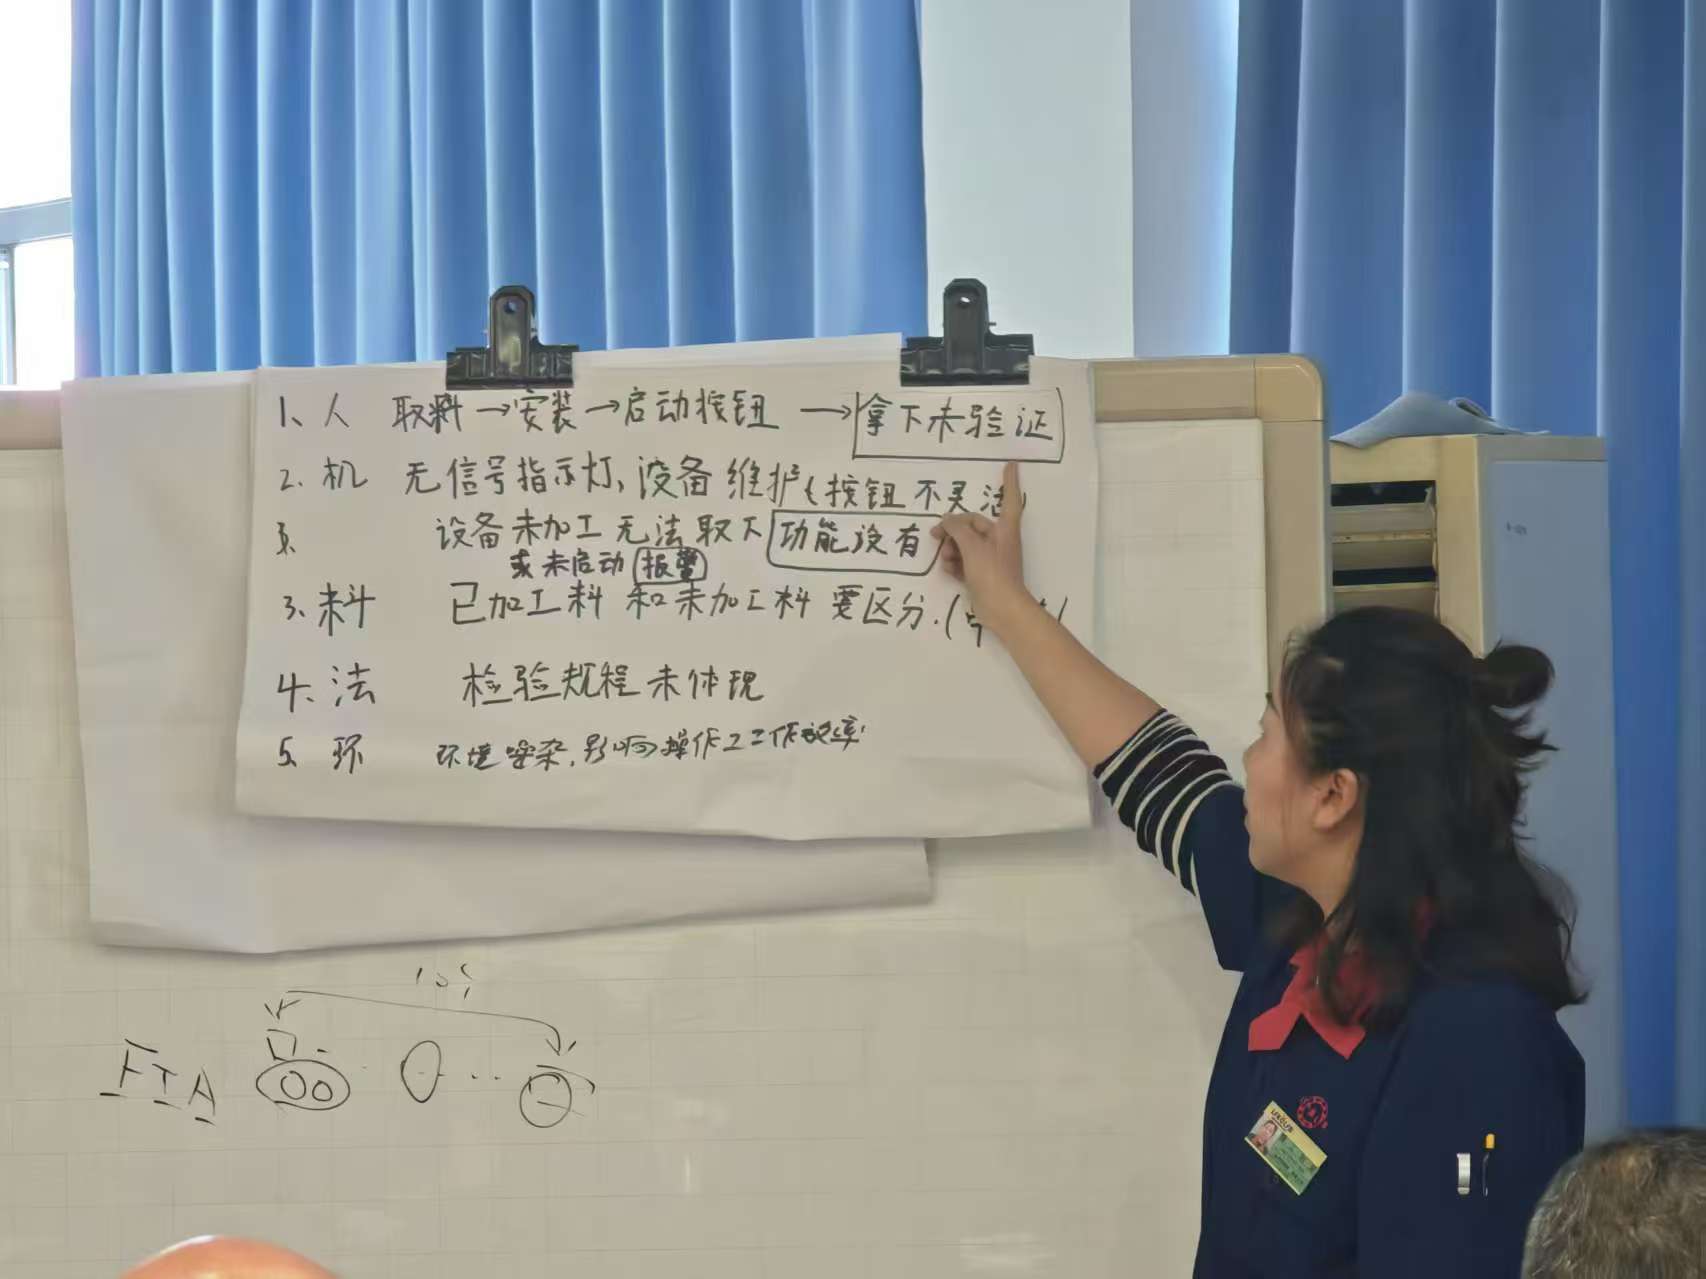 1、人 取料→安装→启动按钮→拿下未验证
2. 机 无信号指示灯、设备维护(按钮不灵活)
设备未加工无法取下 功能没有
或未启动 报警
3、料 已加工料和未加工料要区分.(
4、法 检验规程未体现
5、环 环境嘈杂,影响操作工工作效率
FTA